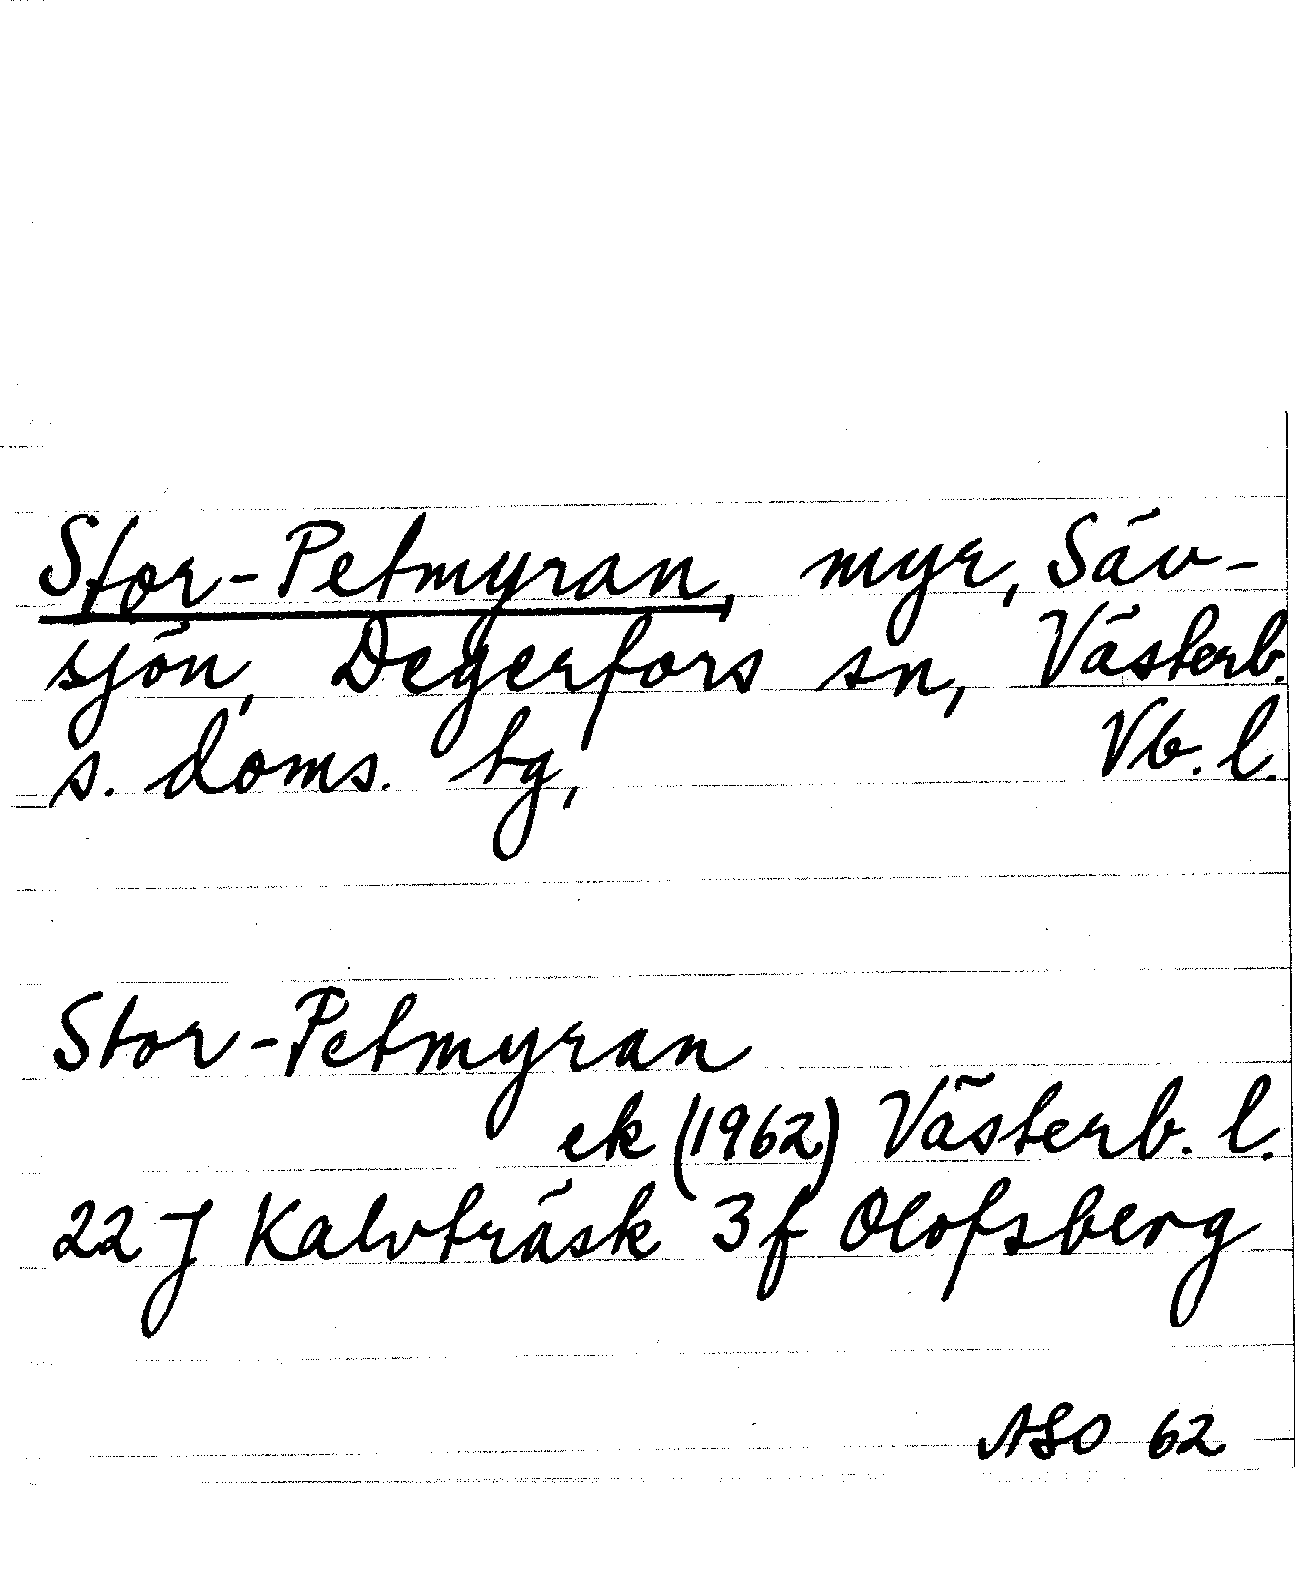 Stor-Petmyran, myr, Säv-
sjön, Degerfors sn, Västerb.
s. doms. tg, Vb. l.
Stor-Petmyran
ek (1962) Västerb. l.
22 J Kalvträsk 3f Olofsberg
ASO 62